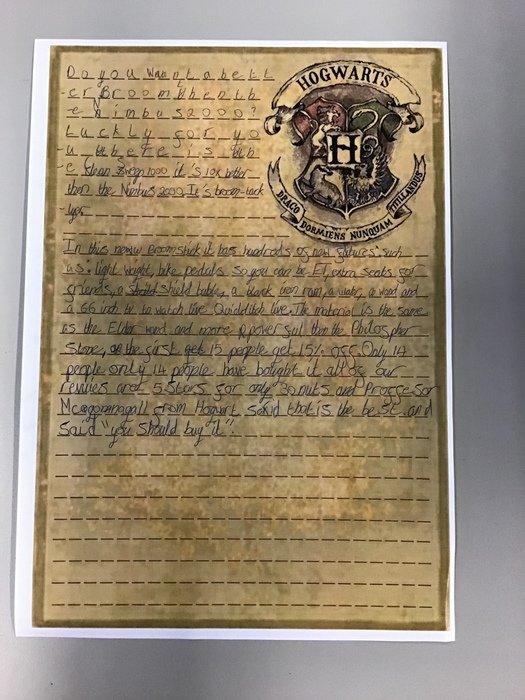 Do you Want a bett
er Broom then th
e nimbus 2000?
Luckly for yo
u there is th
e Clean Sweep 1000 it's 10x better
then the Nimbus 2000. It's broom-tack
HOGWARTS
H
DRACO DORMIENS NUNQUAM TITILLANDUS
In this neww Broomstick it has hundreds of new futures such
us: light waight, bike pedals so you can be E.t, extra seats for
friends, a shield a black van
a 66 inch tv to watch live Quidditch live. The material is the same
as the Elder wand and more power ful then the Philospher
Stone, the first 15 people get 15% off. Only 14
people only 14 people have bought it all of our
reviues aret 5 Stars for only 30 nuts and Proffesor
Mcgonnagall from Hogwart said that is the best and
Said "you should buy it".